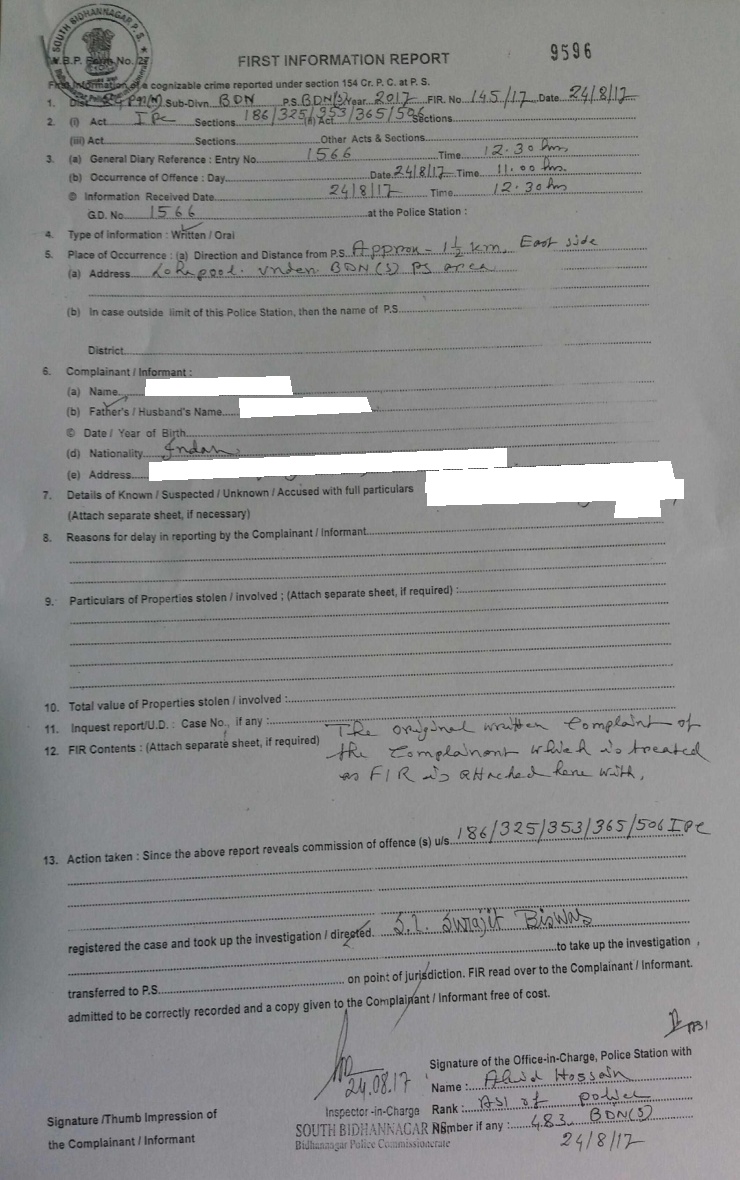 SOUTH BIDHANNAGAR P.S.
W.B.P. Form No. 27
FIRST INFORMATION REPORT
9596
First Information of a cognizable crime reported under section 154 Cr. P. C. at P. S.
1. Dist. Sub-Divn. BDN P.S. BDN(S) Year 2017 FIR. No 145/17 Date 24/8/17
2. (i) Act IPC Sections 186/325/353/365/506 (ii) Act Sections
(iii) Act Sections Other Acts & Sections
3. (a) General Diary Reference : Entry No. 1566 Time 12.30 hrs
(b) Occurrence of Offence : Day Date 24/8/17 Time 11.00 hrs.
© Information Received Date 24/8/17 Time 12.30 hrs
G.D. No 1566 at the Police Station :
4. Type of Information : Written / Oral
5. Place of Occurrence : (a) Direction and Distance from P.S. Approx - 1 1/2 km, East side
(a) Address Lohapool. under BDN(S) PS area
(b) In case outside limit of this Police Station, then the name of P.S.
District
6. Complainant / Informant :
(a) Name
(b) Father's / Husband's Name
© Date / Year of Birth
(d) Nationality Indan
(e) Address
7. Details of Known / Suspected / Unknown / Accused with full particulars
(Attach separate sheet, if necessary)
8. Reasons for delay in reporting by the Complainant / Informant
9. Particulars of Properties stolen / involved ; (Attach separate sheet, if required) :
10. Total value of Properties stolen / involved :
11. Inquest report/U.D. : Case No., if any :
12. FIR Contents : (Attach separate sheet, if required) The original written complaint of
the complainant which is treated
as FIR is attached here with,
13. Action taken : Since the above report reveals commission of offence (s) u/s 186/325/353/365/506 IPC
registered the case and took up the investigation / directed. S.I. Surajit Biswas
to take up the investigation ,
transferred to P.S. on point of jurisdiction. FIR read over to the Complainant / Informant.
admitted to be correctly recorded and a copy given to the Complainant / Informant free of cost.
24.08.17
Signature of the Office-in-Charge, Police Station with
Name : Ahid Hossain
Inspector -in-Charge
Rank : ASI of police
SOUTH BIDHANNAGAR PS
Number if any : 483 BDN(S)
Bidhannagar Police Commissionerate
24/8/17
Signature /Thumb Impression of
the Complainant / Informant